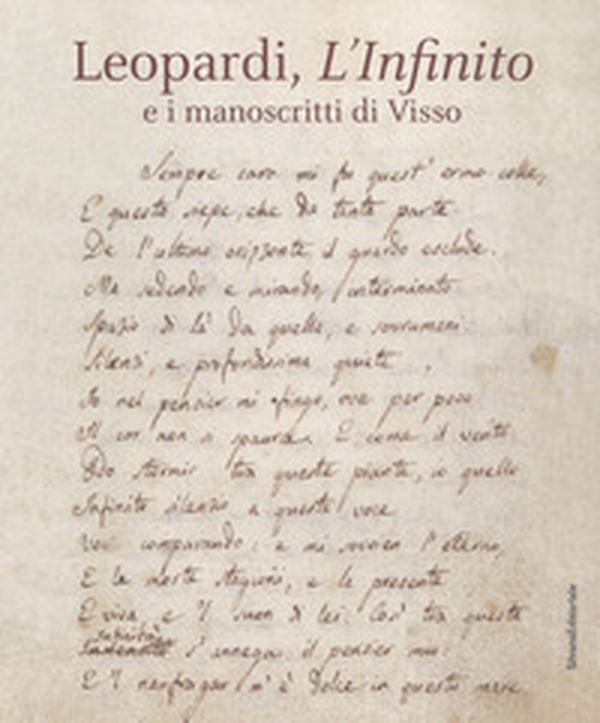 Leopardi, L'Infinito
e i manoscritti di Visso
Sempre caro mi fu quest' ermo colle,
E questa siepe, che da tanta parte
De l'ultimo orizzonte il guardo esclude.
Ma sedendo e mirando, interminato
Spazio di là da quella, e sovrumani
Silenzi, e profondissima quiete
Io nel pensier mi fingo, ove per poco
Il cor non si spaura. E come il vento
Odo stormir tra queste piante, io quello
Infinito silenzio a questa voce
Vo comparando: e mi sovvien l'eterno,
E le morte stagioni, e la presente
E viva, e 'l suon di lei. Così tra questa
infinità
Immensità s'annega il pensier mio:
E 'l naufragar m'è dolce in questo mare.
SilvanaEditoriale